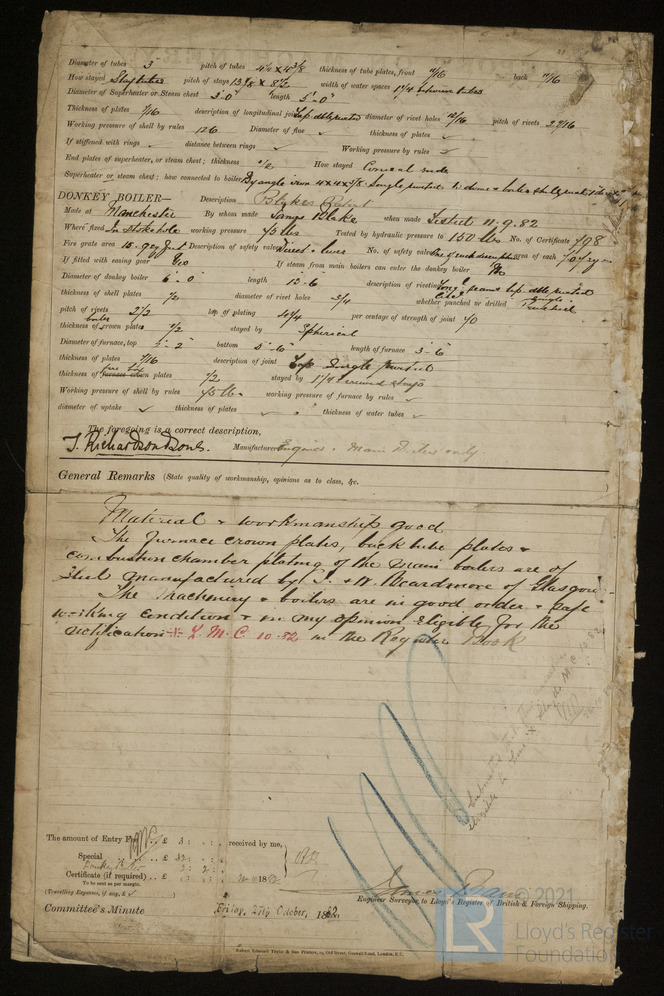 Diameter of tubes 3" pitch of tubes 4¼ x 4⅜ thickness of tube plates, front 11/16 back 11/16
How stayed Stay tubes pitch of stays 13⅞ x 8½ width of water spaces 1¼ between tubes
Diameter of Superheater or Steam chest 3'-0" length 5'-0"
Thickness of plates 7/16 description of longitudinal joint Lap dble riveted diameter of rivet holes 13/16 pitch of rivets 2 9/16
Working pressure of shell by rules 126 Diameter of flue ✓ thickness of plates ✓
If stiffened with rings ✓ distance between rings ✓ Working pressure by rules ✓
End plates of superheater, or steam chest; thickness ½ How stayed
Superheater or steam chest; how connected to boiler By angle iron 4 x 4 x ⅝ Single riveted to dome & boiler
DONKEY BOILER— Description Blakes Patent
Made at Manchester By whom made James Blake when made Tested 11.9.82
Where fixed In Stokehole working pressure 75 lbs Tested by hydraulic pressure to 150 lbs No. of Certificate 798
Fire grate area 15.9 sq ft Description of safety valves Direct & lever No. of safety valves area of each
If fitted with easing gear Yes If steam from main boilers can enter the donkey boiler No
Diameter of donkey boiler 6'-0" length 13'-6" description of riveting Long seams lap dble riveted
thickness of shell plates ½ diameter of rivet holes ¾ whether punched or drilled Punched
pitch of rivets 2½ lap of plating 4¼ per centage of strength of joint 70
thickness of boiler crown plates ½ stayed by Spherical
Diameter of furnace, top 5'-2" bottom 5'-6" length of furnace 3'-6"
thickness of plates 7/16 description of joint Lap Single riveted
thickness of plates ½ stayed by 1¼ round stays
Working pressure of shell by rules 75 lbs. working pressure of furnace by rules ✓
diameter of uptake ✓ thickness of plates ✓ thickness of water tubes ✓
The foregoing is a correct description,
T. Richardson & Sons. Manufacturer Engines & Main Boilers only
General Remarks (State quality of workmanship, opinions as to class, &c.
Material & workmanship good
The Furnace crown plates, back tube plates &
combustion chamber plating of the Main boilers are of
Steel manufactured by J. & W. Beardmore of Glasgow
The Machinery & boilers are in good order & safe
working condition & in my opinion eligible for the
notification ✠ L.M.C 10.82 in the Register Book
The amount of Entry Fee .. £ 3 : : received by me,
Special .. £ 32 : :
Donkey Boiler
Certificate (if required) .. £ 188
To be sent as per margin.
(Travelling Expenses, if any, £ )
Engineer Surveyor to Lloyd's Register of British & Foreign Shipping.
Committee's Minute Friday, 27th October, 1882.
Robert Edmund Taylor & Son Printers, 19, Old Street, Goswell Road, London, E.C.
© 2021
Lloyd's Register
Foundation
LR